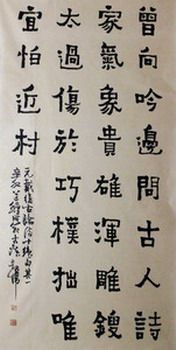 曾向吟邊問古人詩
家氣象貴雄渾雕鎪
太過傷於巧樸拙唯
宜怕近村
戴復古論詩十絕句其一